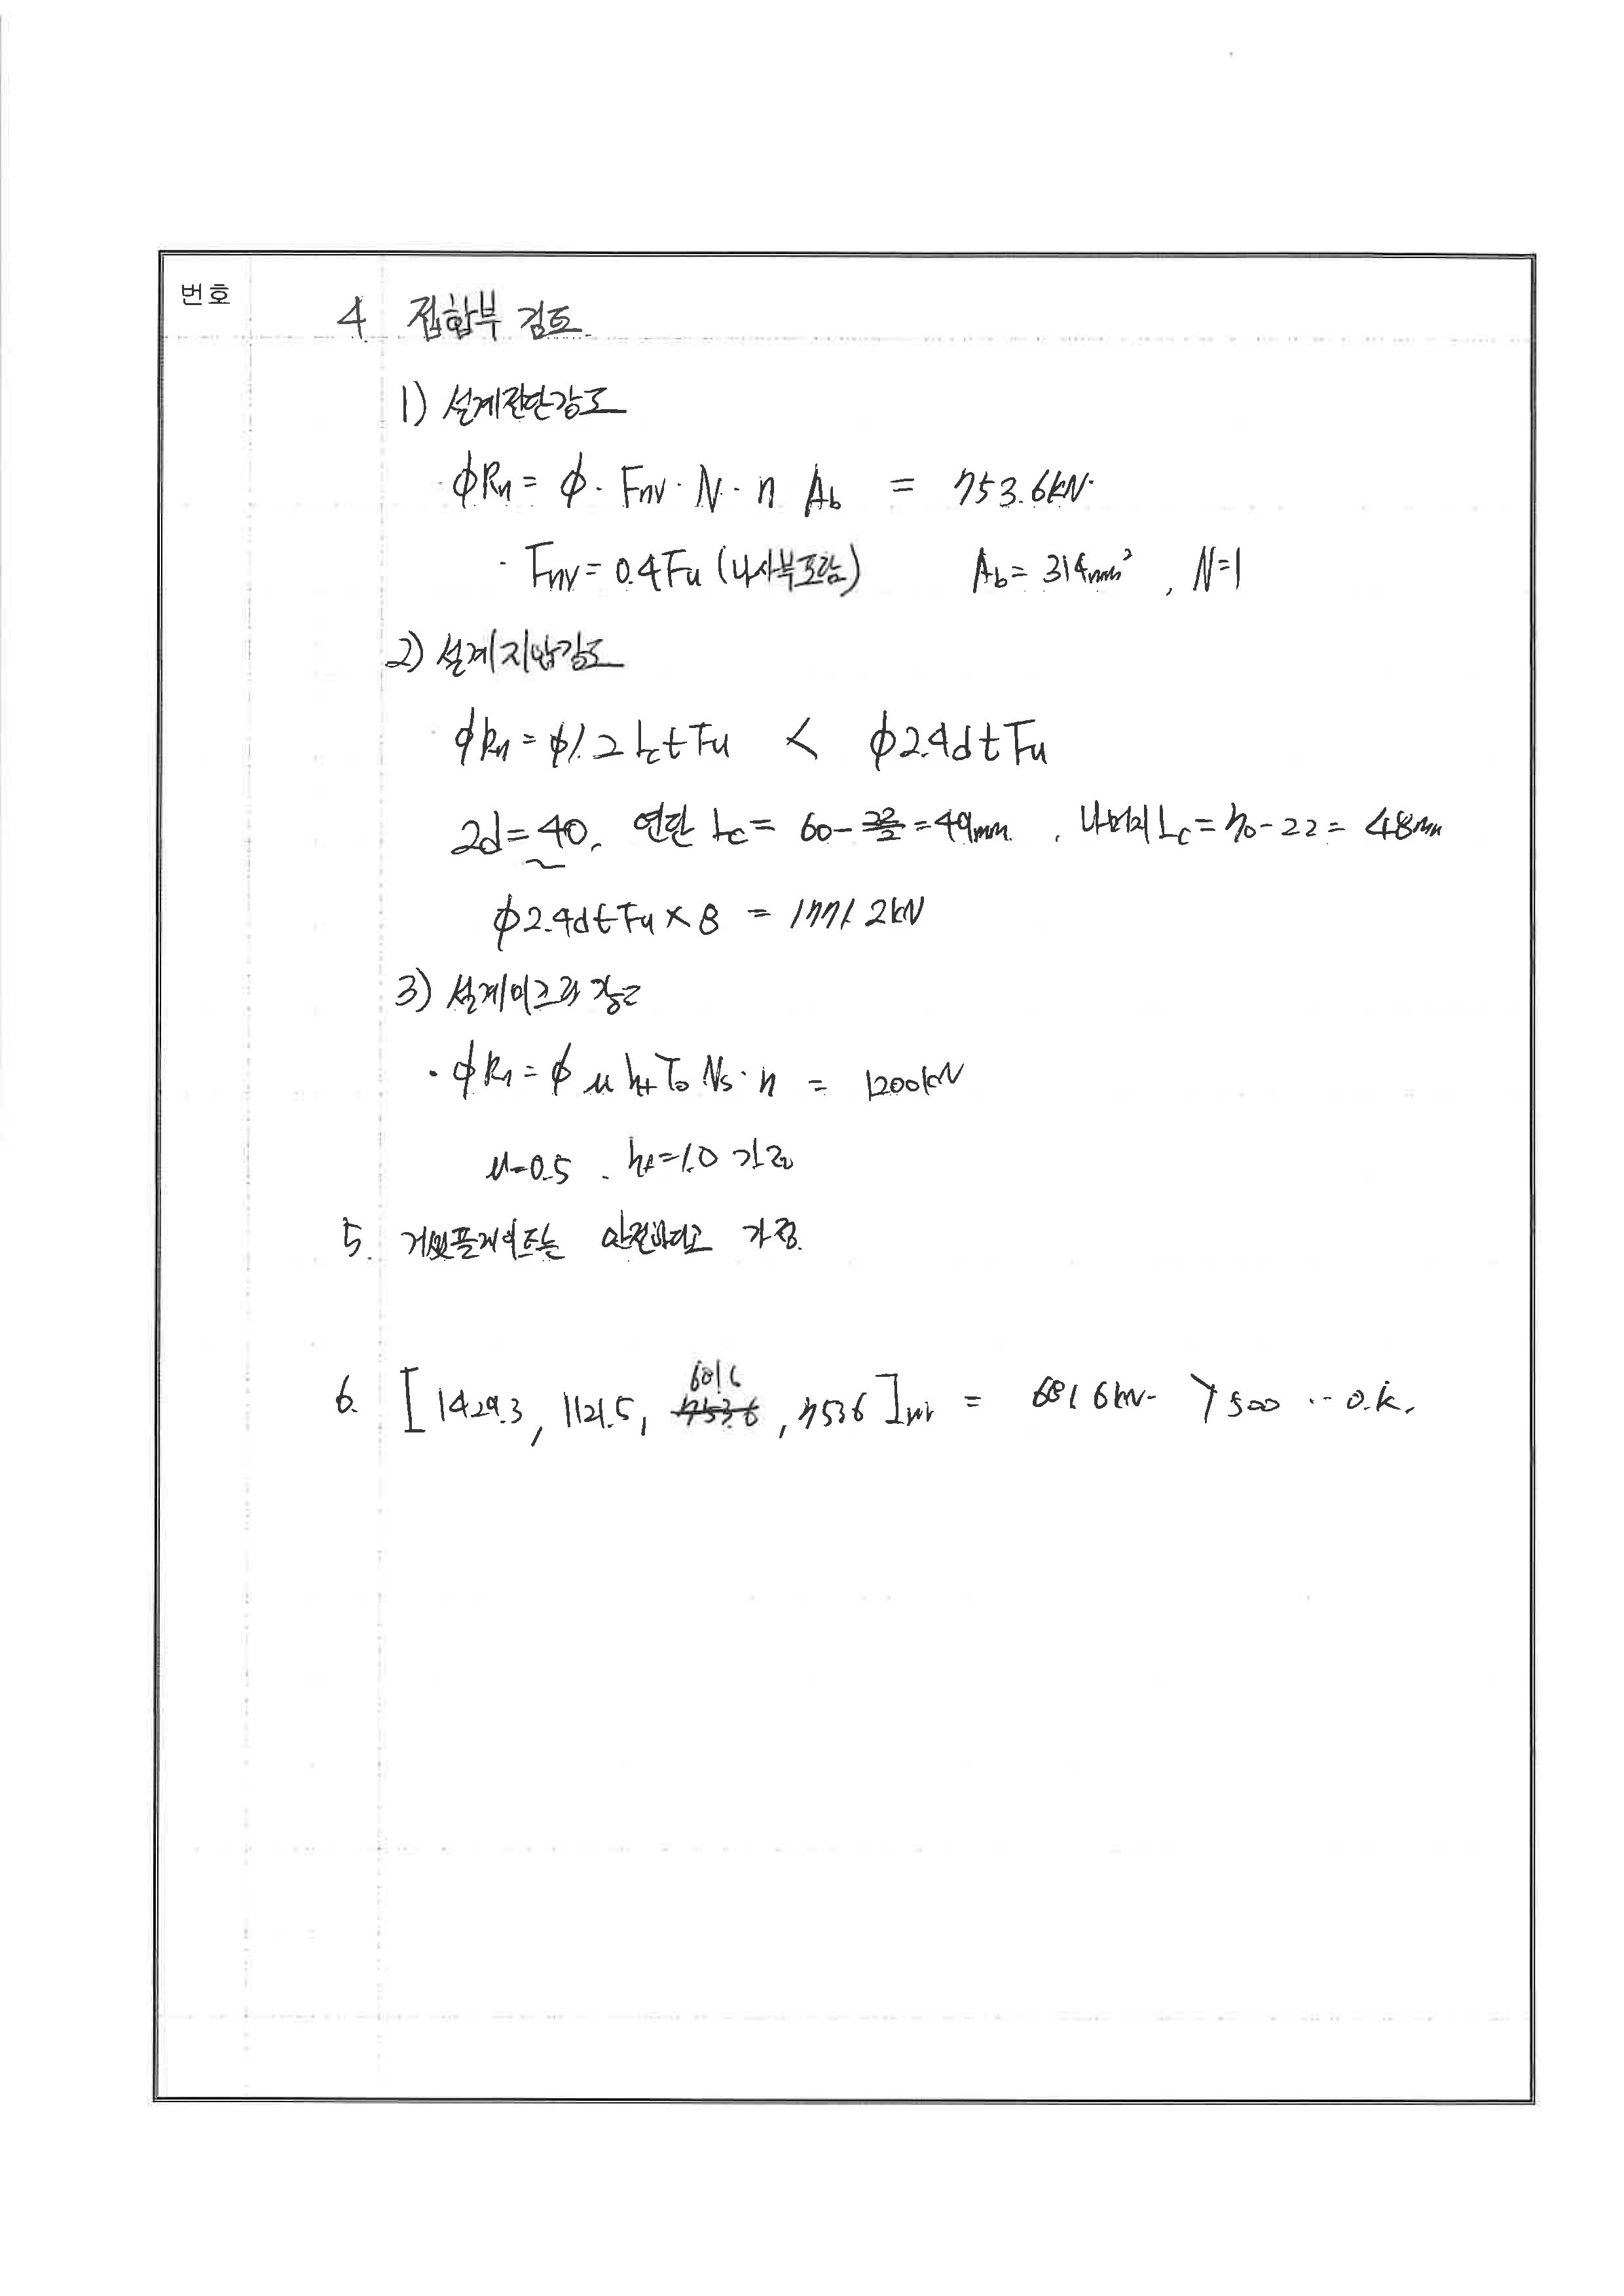 번호
4 접합부 검토
1) 설계전단강도
· ϕRn = ϕ · Fnv · N · n Ab = 753.6kN
· Fnv = 0.4Fu (나사부포함) Ab = 314mm², N=1
2) 설계지압강도
· ϕRn = ϕ1.2 Lc t Fu < ϕ2.4dtFu
2d = 40, 연단 Lc = 60 - 22/2 = 49mm, 나머지 Lc = 70 - 22 = 48mm
ϕ2.4dtFu × 8 = 1771.2kN
3) 설계미끄럼강도
· ϕRn = ϕ μ hf To Ns · n = 1200kN
μ=0.5. hf=1.0 가정
5. 거셋플레이트는 안전하다고 가정.
6. [1429.3, 1121.5, 753.6, 753.6]min = kN > 500 ·· O.K.